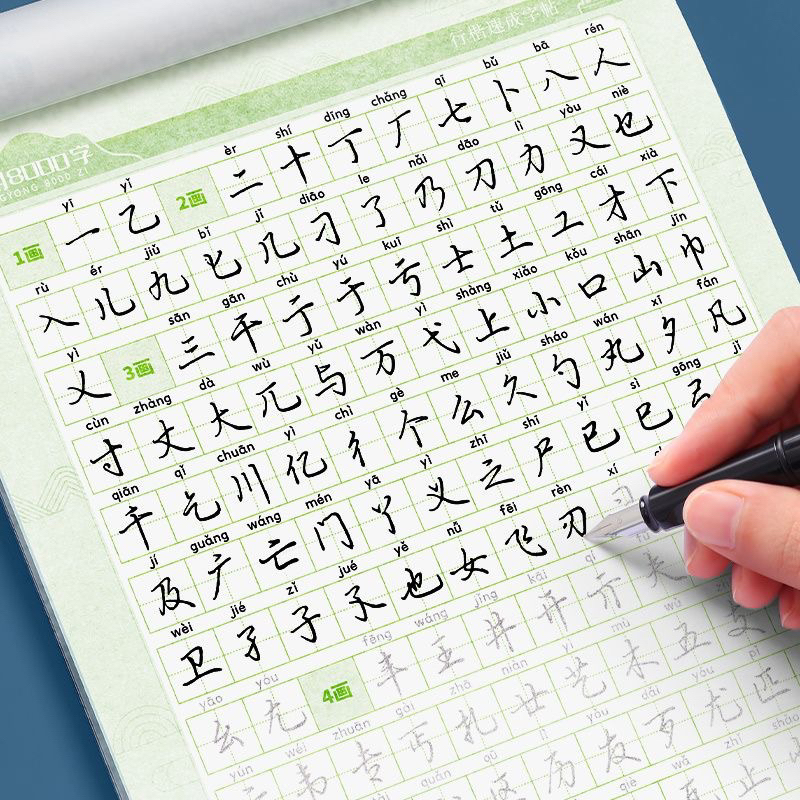 行楷速成字帖
8000字
GYONG 8000 ZI
yī yǐ èr shí dīng chǎng qī bǔ bā rén
1画 一 乙 2画 二 十 丁 厂 七 卜 八 人
rù ér jiǔ bǐ jǐ diāo le nǎi dāo lì yòu niè
入 儿 九 匕 几 刁 了 乃 刀 力 又 乜
yì sān gān chù yú kuī shì tǔ gōng cái xià
乂 3画 三 干 亍 于 亏 士 土 工 才 下
cùn zhàng dà wù yǔ wàn yì shàng xiǎo kǒu shān jīn
寸 丈 大 兀 与 万 弋 上 小 口 山 巾
qiān qǐ chuān yì chì gè me jiǔ sháo wán xī fán
千 乞 川 亿 彳 个 么 久 勺 丸 夕 凡
jí guǎng wáng mén yā yì zhī shī yǐ sì gōng jǐ
及 广 亡 门 丫 义 之 尸 已 巳 弓
wèi jié zǐ jué yě nǚ fēi rèn xí
卫 孑 子 孓 也 女 飞 刃 习
yāo yóu fēng wáng jǐng kāi qí fū
幺 尢 4画 丰 王 井 开 亓 夫
yún wéi zhuān gài zhā niàn yì mù wǔ zhī
韦 专 丐 扎 廿 艺 木 五 支
lì yǒu dǎi yóu pǐ
历 友 歹 尤 匹